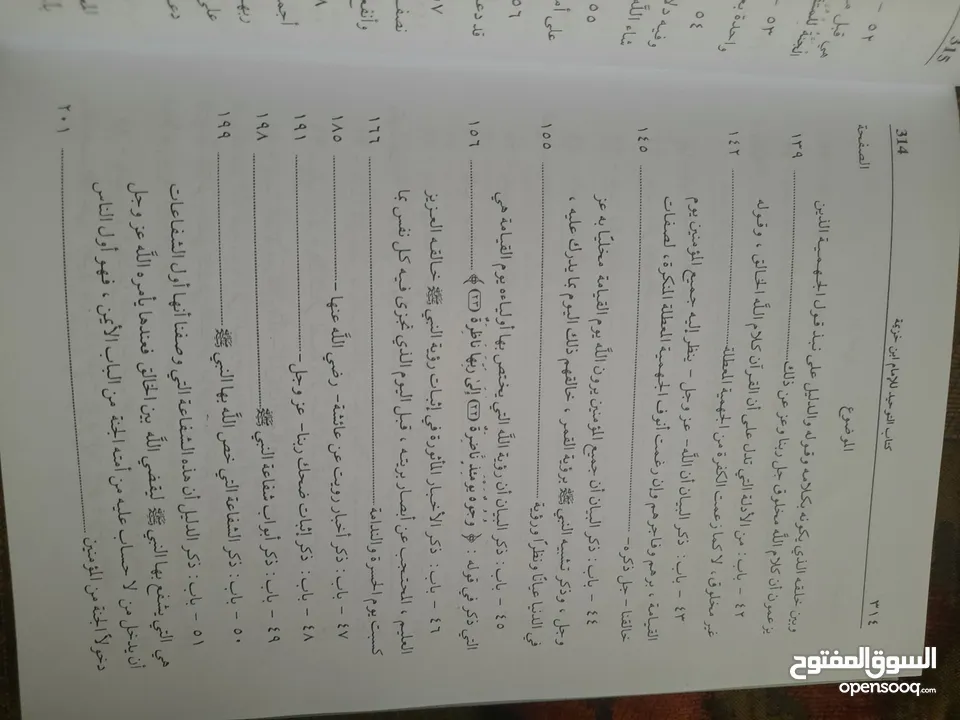 314
كتاب التوحيد للإمام ابن خزيمة
٣١٤
الموضوع
الصفحة
وبين خلقه الذي يكونه بكلامه وقوله والدليل على نبذ قول الجهمية الذين
يزعمون أن كلام الله مخلوق جل ربنا وعز عن ذلك ١٣٩
٤٢ - باب: من الأدلة التي تدل على أن القرآن كلام الله الخالق، وقوله
غير مخلوق، لا كما زعمت الكفرة من الجهمية المعطلة ١٤٢
٤٣ - باب: ذكر البيان أن الله - عز وجل - ينظر إليه جميع المؤمنين يوم
القيامة، برهم وفاجرهم وإن رغمت أنوف الجهمية المعطلة المنكرة، لصفات
خالقنا - جل ذكره - ١٤٥
٤٤ - باب: ذكر البيان أن جميع المؤمنين يرون الله يوم القيامة مخليًا به عز
وجل، وذكر تشبيه النبي ﷺ برؤية القمر، خالقهم ذلك اليوم بما يدرك عليه،
في الدنيا عيانًا ونظرًا ورؤية ١٥٥
٤٥ - باب: ذكر البيان أن رؤية الله التي يختص بها أولياءه يوم القيامة هي
التي ذكر في قوله: ﴿ وُجُوهٌ يَوْمَئِذٍ نَاضِرَةٌ (٢٢) إِلَى رَبِّهَا نَاظِرَةٌ (٢٣) ﴾ ١٥٦
٤٦ - باب: ذكر الأخبار المأثورة في إثبات رؤية النبي ﷺ خالقه العزيز
العليم، المحتجب عن أبصار بريته، قبل اليوم الذي تجزى فيه كل نفس بما
كسبت يوم الحسرة والندامة ١٦٦
٤٧ - باب: ذكر أخبار رويت عن عائشة - رضي الله عنها - ١٨٥
٤٨ - باب: ذكر إثبات ضحك ربنا - عز وجل - ١٩١
٤٩ - باب: ذكر أبواب شفاعة النبي ﷺ ١٩٨
٥٠ - باب: ذكر الشفاعة التي خص الله بها النبي ﷺ ١٩٩
٥١ - باب: ذكر الدليل أن هذه الشفاعة التي وصفنا أنها أول الشفاعات
هي التي يشفع بها النبي ﷺ ليقضي الله بين الخالق فعندها يأمره الله عز وجل
أن يدخل من لا حساب عليه من أمته الجنة من الباب الأيمن، فهو أول الناس
دخولًا الجنة من المؤمنين ٢٠١
315
٥٢ -
هي قبل
٥٣ -
واحدة
٥٤
وفيه
شاء الله
٥٥
على
٥٦
قد
٥٧
السوق المفتوح
opensooq.com